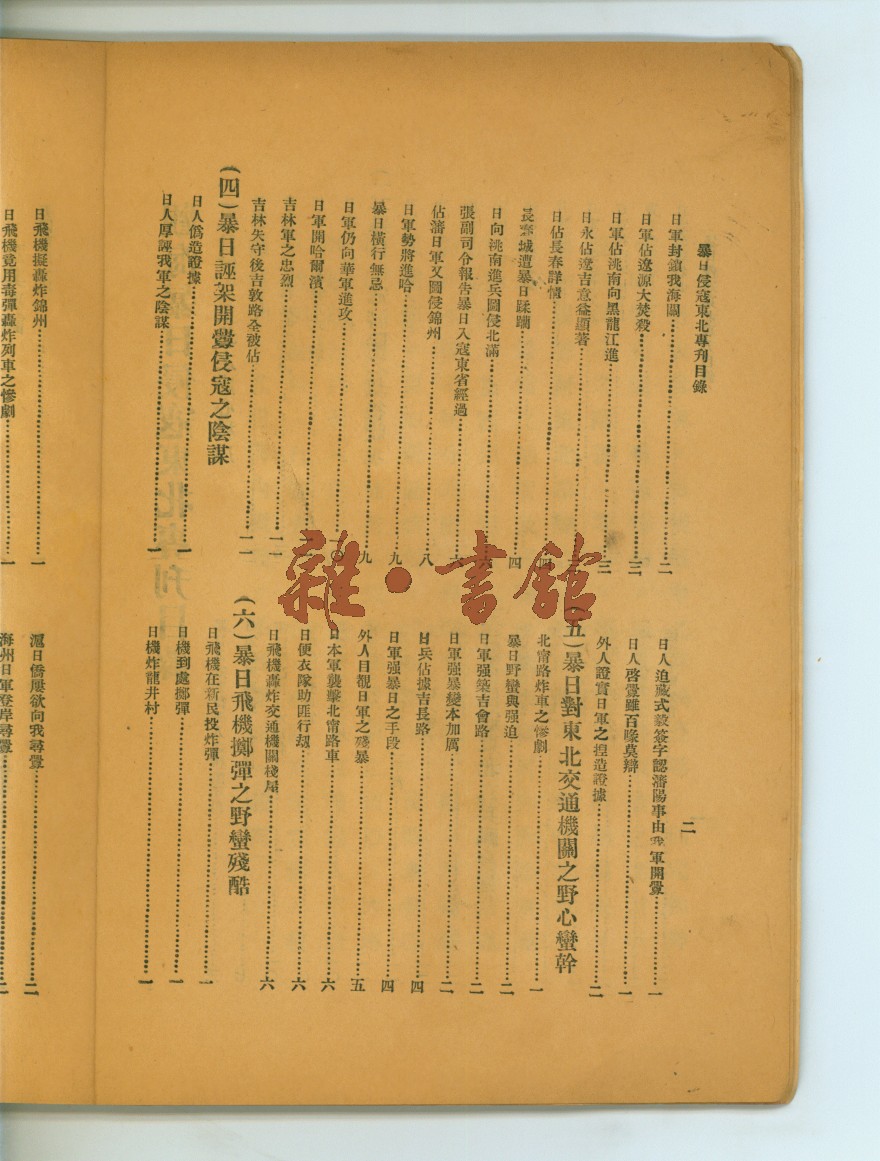 暴日侵寇東北專刊目錄
二
日軍封鎖我海關………二
日軍佔遼源大焚殺………三
日軍佔洮南向黑龍江進………三
日永佔遼吉意益顯著………
日佔長春詳情………四
長春城遭暴日蹂躪………四
日向洮南進兵圖侵北滿………六
張副司令報告暴日入寇東省經過………六
佔瀋日軍又圖侵錦州………八
日軍勢將進哈………九
暴日橫行無忌………九
日軍仍向華軍進攻………一〇
日軍開哈爾濱………
吉林軍之忠烈………一一
吉林失守後吉敦路全被佔………一一
(四)暴日誣架開釁侵寇之陰謀
日人僞造證據………一
日人厚誣我軍之陰謀………一
日人迫臧式毅簽字認瀋陽事由我軍開釁………一
日人啓釁雖百喙莫辯………一
外人證實日軍之揑造證據………二
(五)暴日對東北交通機關之野心蠻幹
北甯路炸車之慘劇………一
暴日野蠻與强迫………二
日軍强築吉會路………二
日軍强暴變本加厲………二
日兵佔據吉長路………四
日軍强暴日之手段………四
外人目覩日軍之殘暴………五
日本軍襲擊北甯路車………六
日便衣隊助匪行刼………六
日飛機轟炸交通機關棧屋………六
(六)暴日飛機擲彈之野蠻殘酷
日飛機在新民投炸彈………一
日機到處擲彈………一
日機炸龍井村………一
日飛機擬轟炸錦州………一
日飛機竟用毒彈轟炸列車之慘劇………一
滬日僑屢欲向我尋釁………二
海州日軍登岸尋釁………二
雜·書館